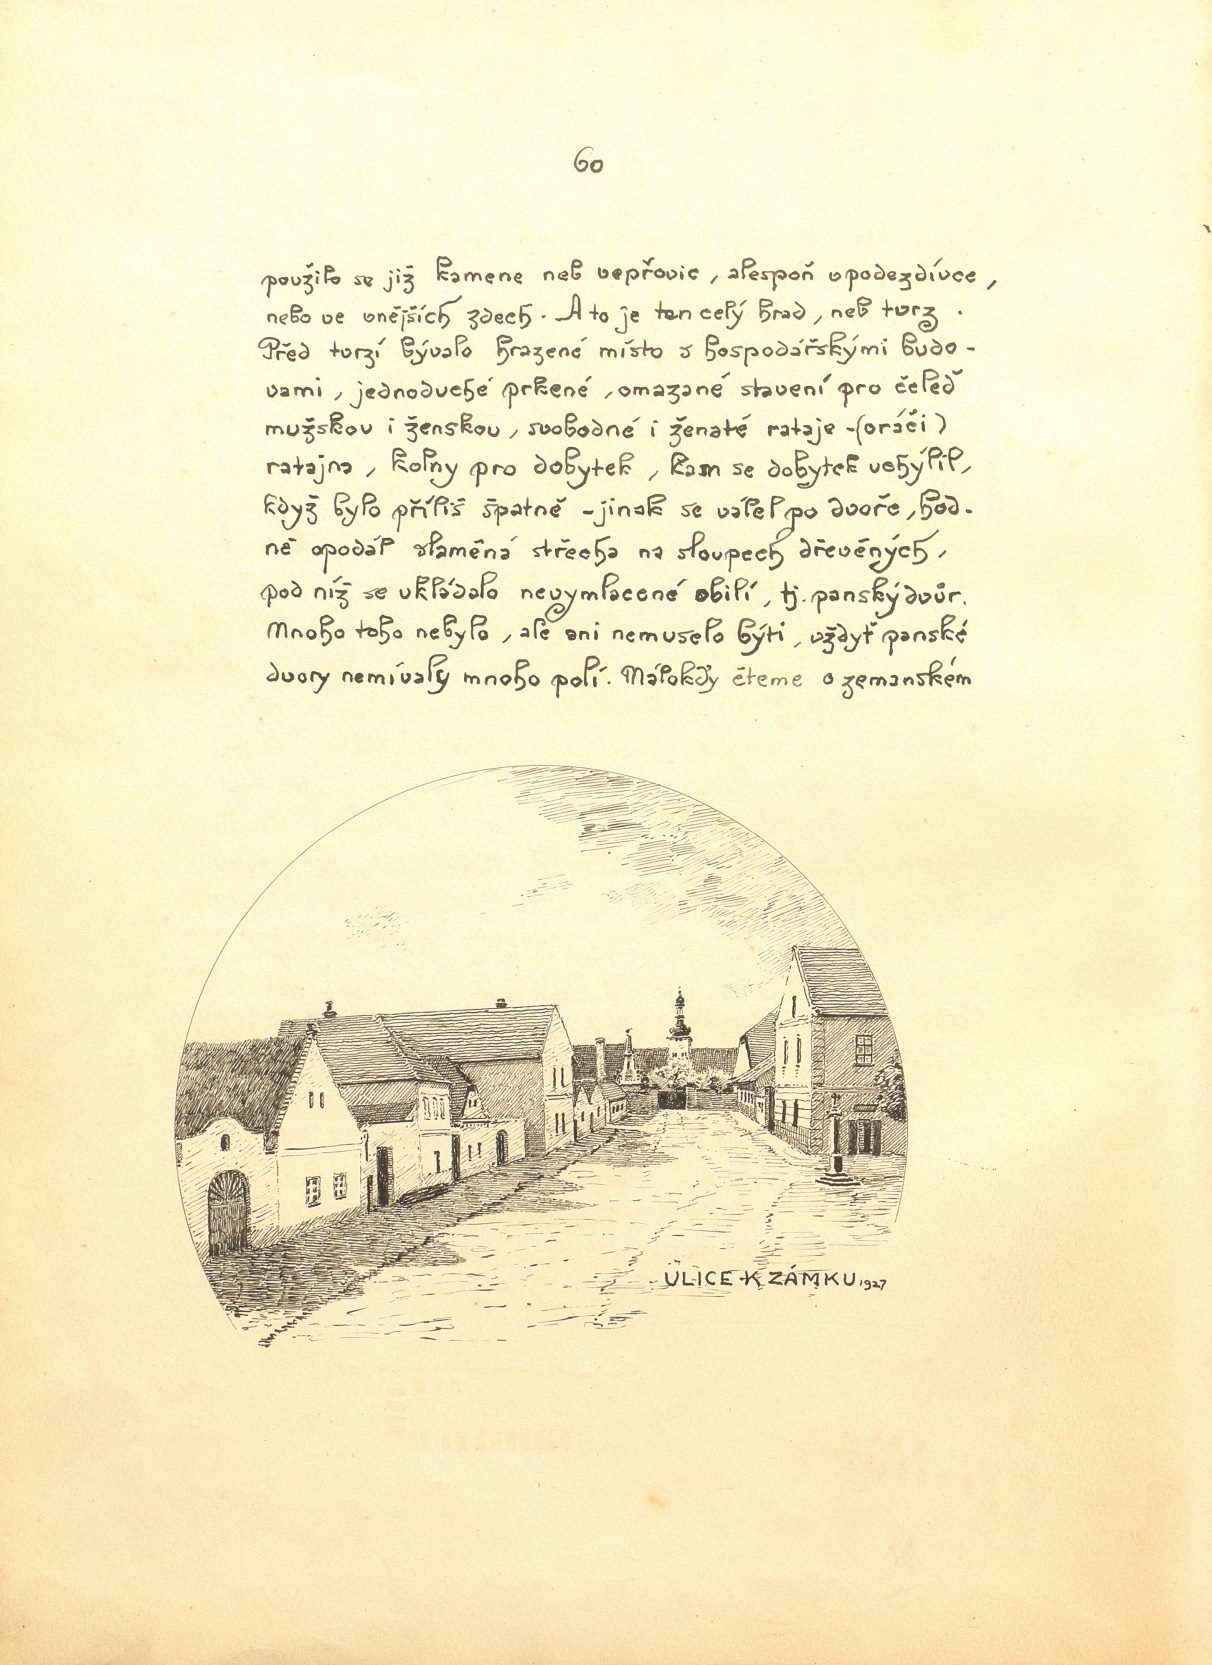 60
použilo se již kamene neb vepřovic, alespoň v podezdívce,
nebo ve vnějších zdech. A to je ten celý hrad, neb tvrz.
Před tvrzí bývalo hrazené místo s hospodářskými budo-
vami, jednoduché prkené, omazané stavení pro čeleď
mužskou i ženskou, svobodné i ženaté rataje -(oráči)
ratajna, kolny pro dobytek, kam se dobytek uchýlil,
když bylo příliš špatně - jinak se válel po dvoře, hod-
ně opodál slaměná střecha na sloupech dřevěných,
pod níž se ukládalo nevymlacené obilí, tj. panský dvůr.
Mnoho toho nebylo, ale ani nemuselo býti, vždyť panské
dvory nemívaly mnoho polí. Málokdy čteme o zemanském
ULICE K ZÁMKU 1927